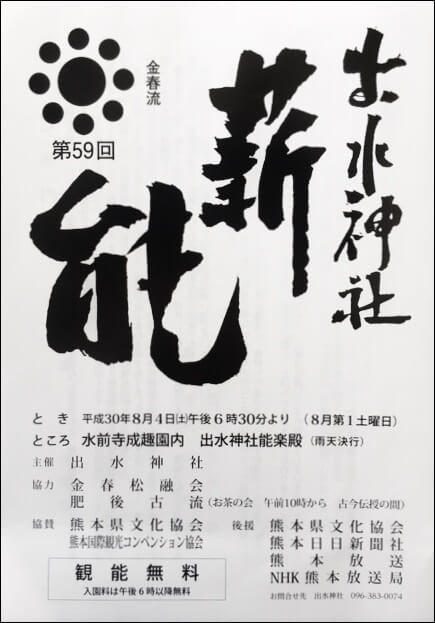 出水神社
薪能
金春流
第59回
とき 平成30年8月4日㈯午後6時30分より (8月第1土曜日)
ところ 水前寺成趣園内 出水神社能楽殿 (雨天決行)
主催 出水神社
協力 金春松融会
肥後古流(お茶の会 午前10時から 古今伝授の間)
協賛 熊本県文化協会
熊本国際観光コンベンション協会
後援 熊本県文化協会
熊本日日新聞社
熊本放送
NHK熊本放送局
観能無料
入園料は午後6時以降無料
お問合せ先 出水神社 096-383-0074